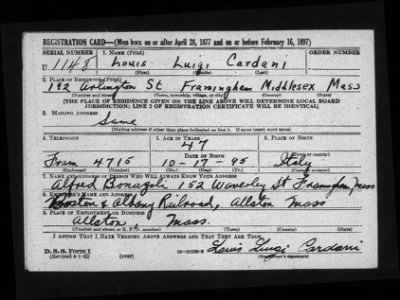 REGISTRATION CARD—(Men born on or after April 28, 1877 and on or before February 16, 1897)
SERIAL NUMBER 1. NAME (Print) ORDER NUMBER
U 1148 Louis Luigi Cardani
(First) (Middle) (Last)
2. PLACE OF RESIDENCE (Print)
192 Arlington St Framingham Middlesex Mass
(Number and street) (Town, township, village, or city) (County) (State)
[THE PLACE OF RESIDENCE GIVEN ON THE LINE ABOVE WILL DETERMINE LOCAL BOARD
JURISDICTION; LINE 2 OF REGISTRATION CERTIFICATE WILL BE IDENTICAL]
3. MAILING ADDRESS
Same
[Mailing address if other than place indicated on line 2. If same insert word same]
4. TELEPHONE 5. AGE IN YEARS 6. PLACE OF BIRTH
47
DATE OF BIRTH
Fram 4715 10-17-95 Italy
(Exchange) (Number) (Mo.) (Day) (Yr.) (State or country)
7. NAME AND ADDRESS OF PERSON WHO WILL ALWAYS KNOW YOUR ADDRESS
Alfred Bonazoli, 152 Waverley St Framingham, Mass
8. EMPLOYER'S NAME AND ADDRESS
Boston & Albany Railroad, Allston Mass
9. PLACE OF EMPLOYMENT OR BUSINESS
Allston Mass.
(Number and street or R. F. D. number) (Town) (County) (State)
I AFFIRM THAT I HAVE VERIFIED ABOVE ANSWERS AND THAT THEY ARE TRUE.
D. S. S. Form 1 Louis Luigi Cardani
(Revised 4-1-42) (over) (Registrant's signature)